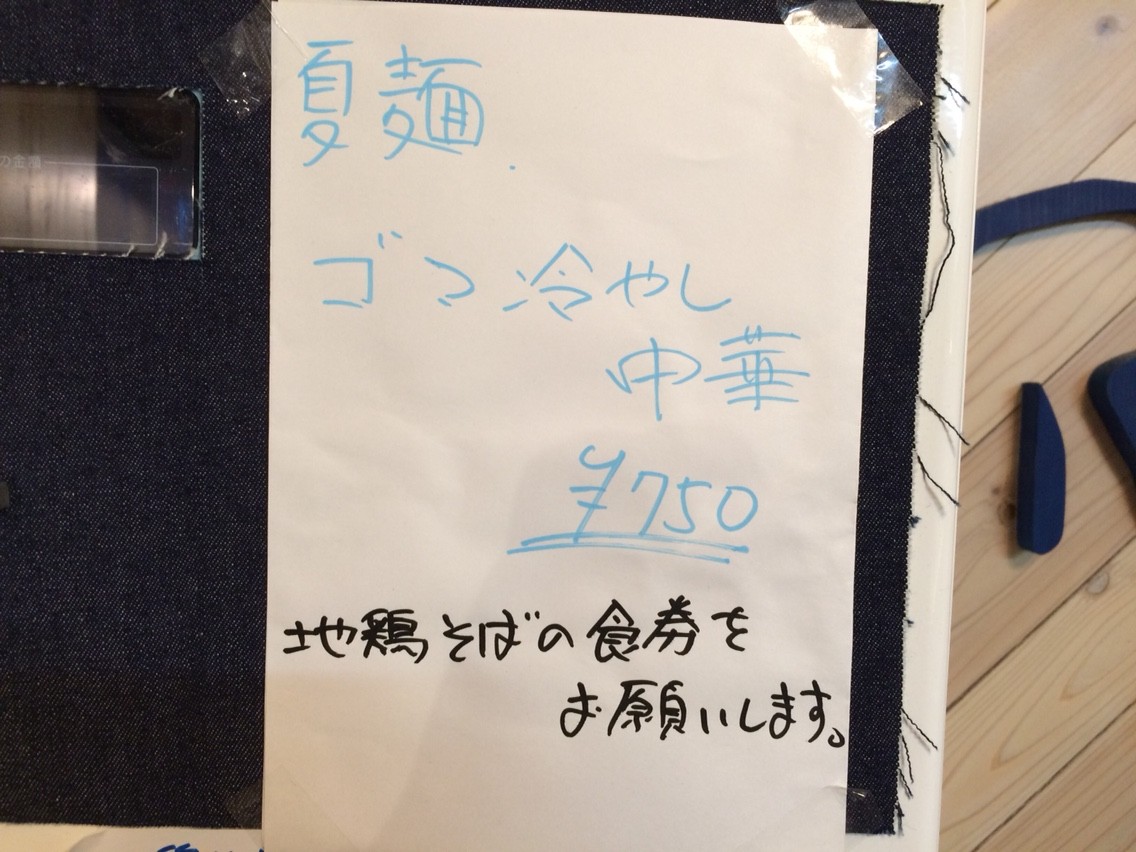 夏麺.
ゴマ冷やし
中華
¥750
地鶏そばの食券を
お願いします。
の金額